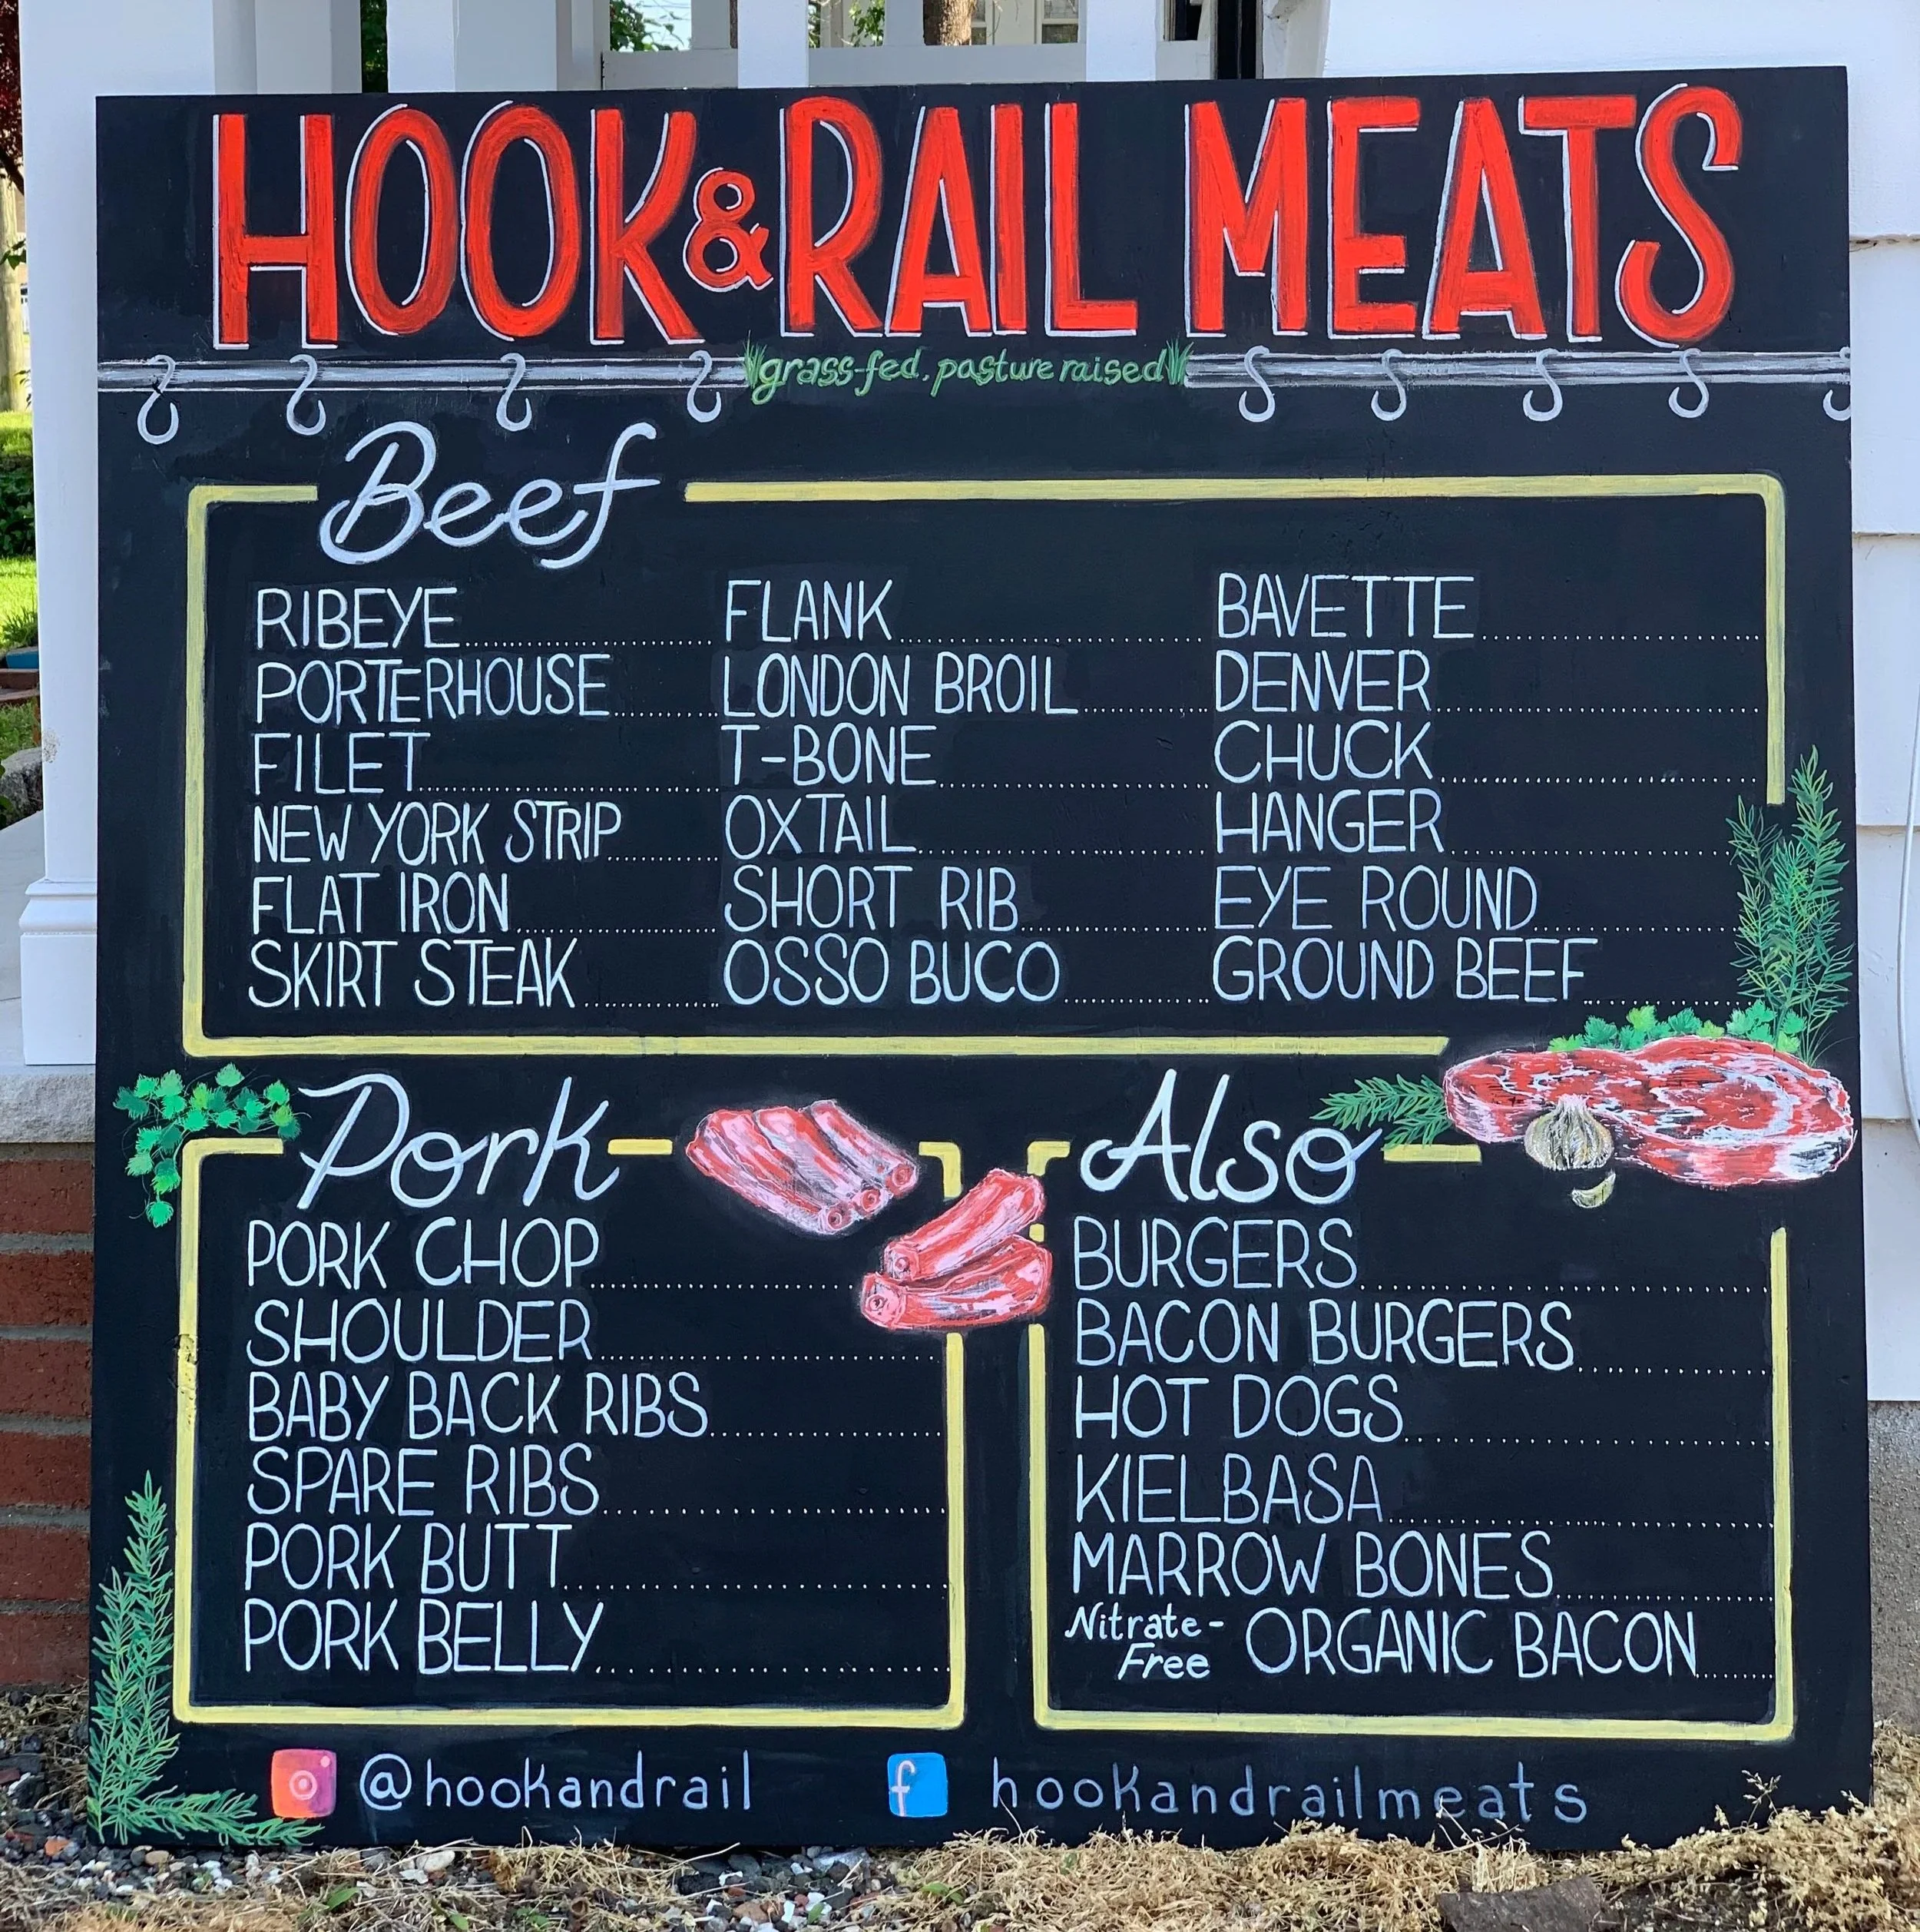 HOOK & RAIL MEATS
grass-fed, pasture raised
Beef
RIBEYE
PORTERHOUSE
FILET
NEW YORK STRIP
FLAT IRON
SKIRT STEAK
FLANK
LONDON BROIL
T-BONE
OXTAIL
SHORT RIB
OSSO BUCO
BAVETTE
DENVER
CHUCK
HANGER
EYE ROUND
GROUND BEEF
Pork
PORK CHOP
SHOULDER
BABY BACK RIBS
SPARE RIBS
PORK BUTT
PORK BELLY
Also
BURGERS
BACON BURGERS
HOT DOGS
KIELBASA
MARROW BONES
Nitrate-Free ORGANIC BACON
@hookandrail
f hookandrailmeats